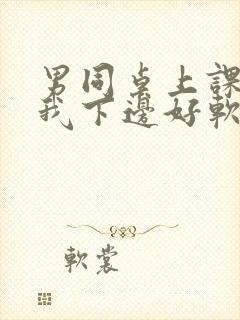 男同桌上課
我下邊好軟
軟裳